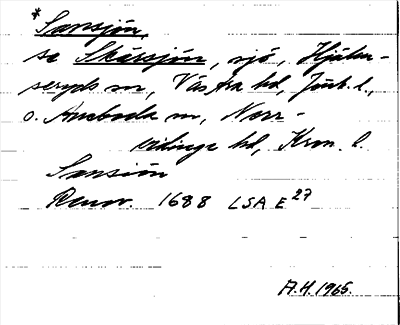 *Sansjön,
se Skärsjön, sjö, Hjälm-
seryds sn, Västra hd, Jönk. l.,
o. Aneboda sn, Norr-
vidinge hd, Kron. l.
Sansiön
Renov. 1688 LSA E27
A.H. 1965.